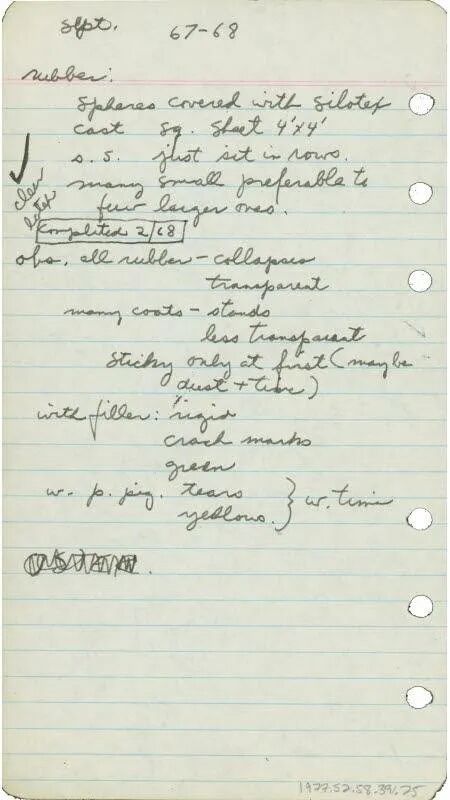 Sept. 67-68
rubber:
spheres covered with silotex
cast sq. sheet 4'x4'
s. s. just sit in rows.
many small preferable to
clear latex
few larger ones.
completed 2/68
obs. all rubber - collapses
transparent
many coats - stands
less transparent
sticky only at first (maybe
dust + time)
with filler: rigid
crack marks
green
w. p. pig. tears } w. time
yellows.
1977.52.58.391.25